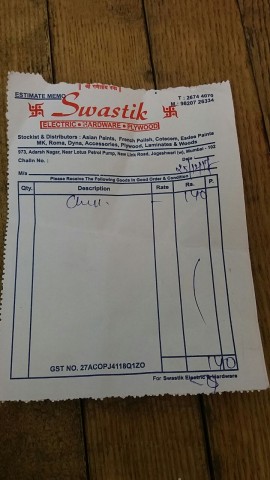 ॥ श्री गणेशाय नमः ॥
ESTIMATE MEMO
T : 2674 4070
M : 98207 26334
Swastik
ELECTRIC • HARDWARE • PLYWOOD
Stockist & Distributors : Asian Paints, French Polish, Cotecem, Esdee Paints
MK, Roma, Dyna, Accessories, Plywood, Laminates & Woods
973, Adarsh Nagar, Near Lotus Petrol Pump, New Link Road, Jogeshwari (w), Mumbai - 102
Challn No. :
Date
M/s
Please Receives The Following Goods In Good Order & Condition
Qty. Description Rate Rs. P.
140
GST NO. 27ACOPJ4118Q1ZO
140
For Swastik Electric & Hardware